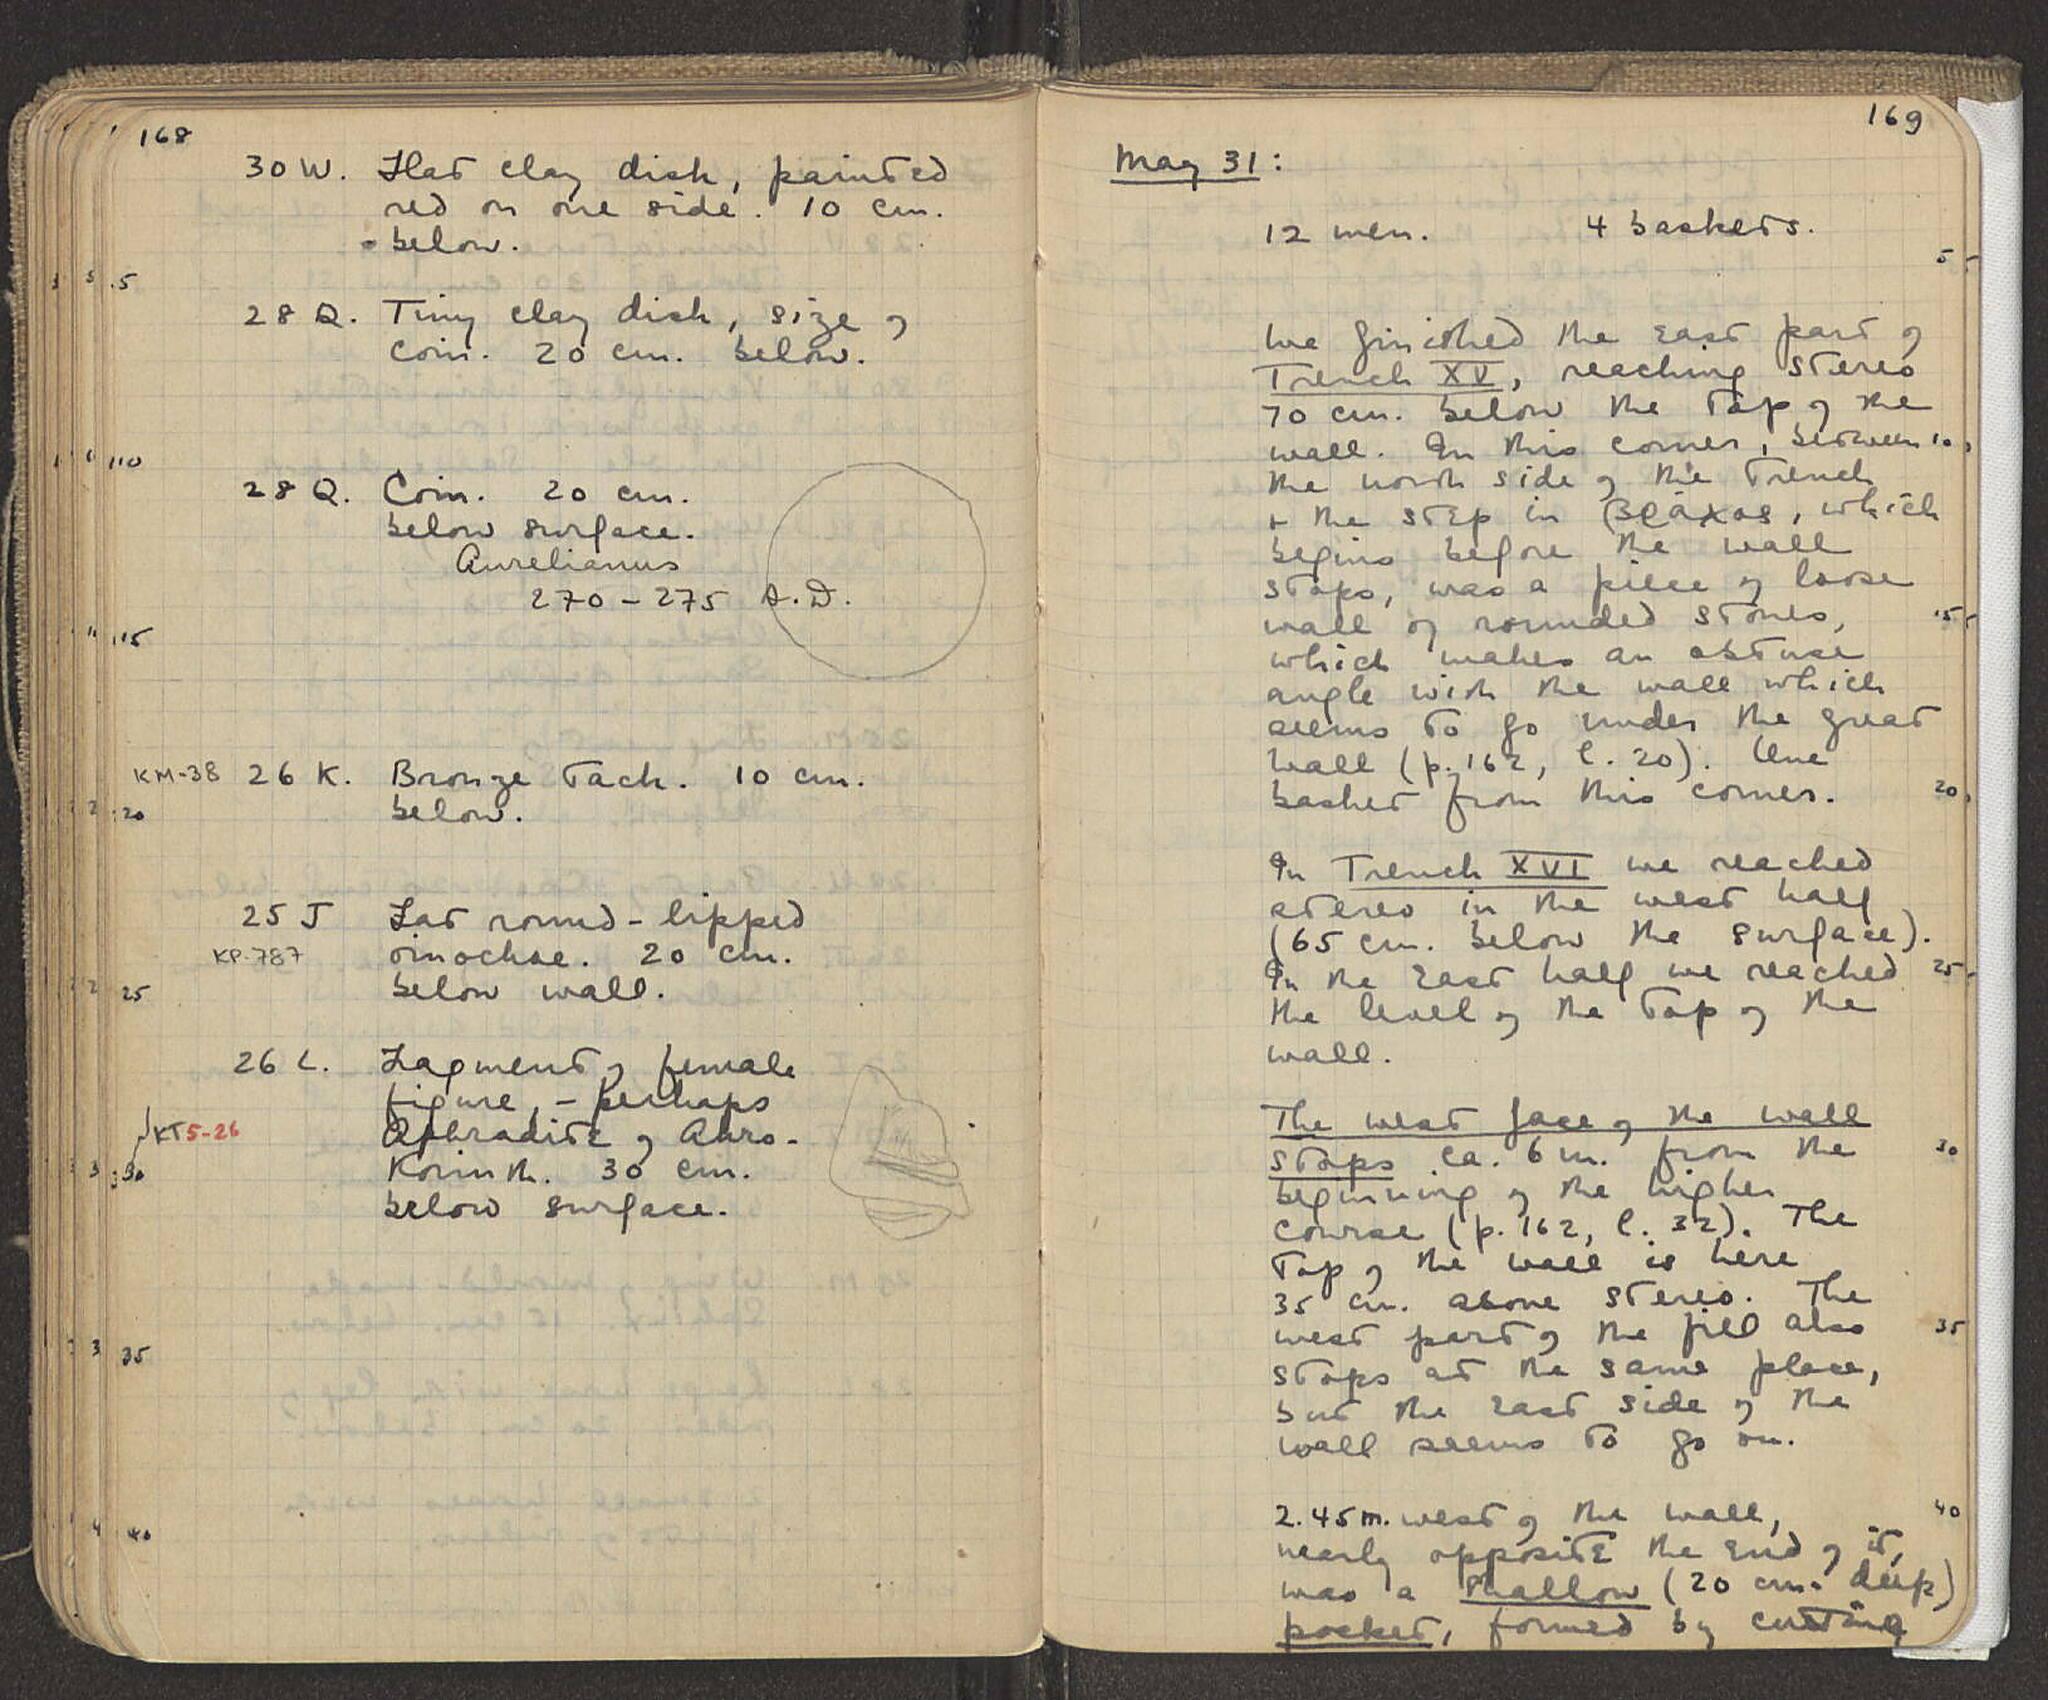 168
30 W. Flat clay dish, painted
red on one side. 10 cm.
below.
5
28 Q. Tiny clay dish, size of
coin. 20 cm. below.
10
28 Q. Coin. 20 cm.
below surface.
Aurelianus
270 - 275 A.D.
15
KM-38 26 K. Bronze tack. 10 cm.
below.
20
25 J Fat round-lipped
KP-787 oinochoe. 20 cm.
below wall.
25
26 L. Fragment of female
figure, - perhaps
KT5-26 Aphrodite of Akro-
Korinth. 30 cm.
30
below surface.
35
40
169
May 31:
12 men. 4 baskets.
5
We finished the east part of
Trench XV, reaching stereo
70 cm. below the top of the
wall. In this corner, between 10
the north side of the trench
+ the step in βράχος, which
begins before the wall
stops, was a piece of loose
wall of rounded stones, 15
which makes an obtuse
angle with the wall which
seems to go under the great
wall (p. 162, l. 20). One
basket from this corner. 20
In Trench XVI we reached
stereo in the west half
(65 cm. below the surface).
In the east half we reached 25
the level of the top of the
wall.
The west face of the wall
stops ca. 6 m. from the 30
beginning of the higher
course (p. 162, l. 32). The
top of the wall is here
35 cm. above stereo. The
west part of the fill also 35
stops at the same place,
but the east side of the
wall seems to go on.
2.45 m. west of the wall, 40
nearly opposite the end of it,
was a shallow (20 cm. deep)
pocket, formed by cutting